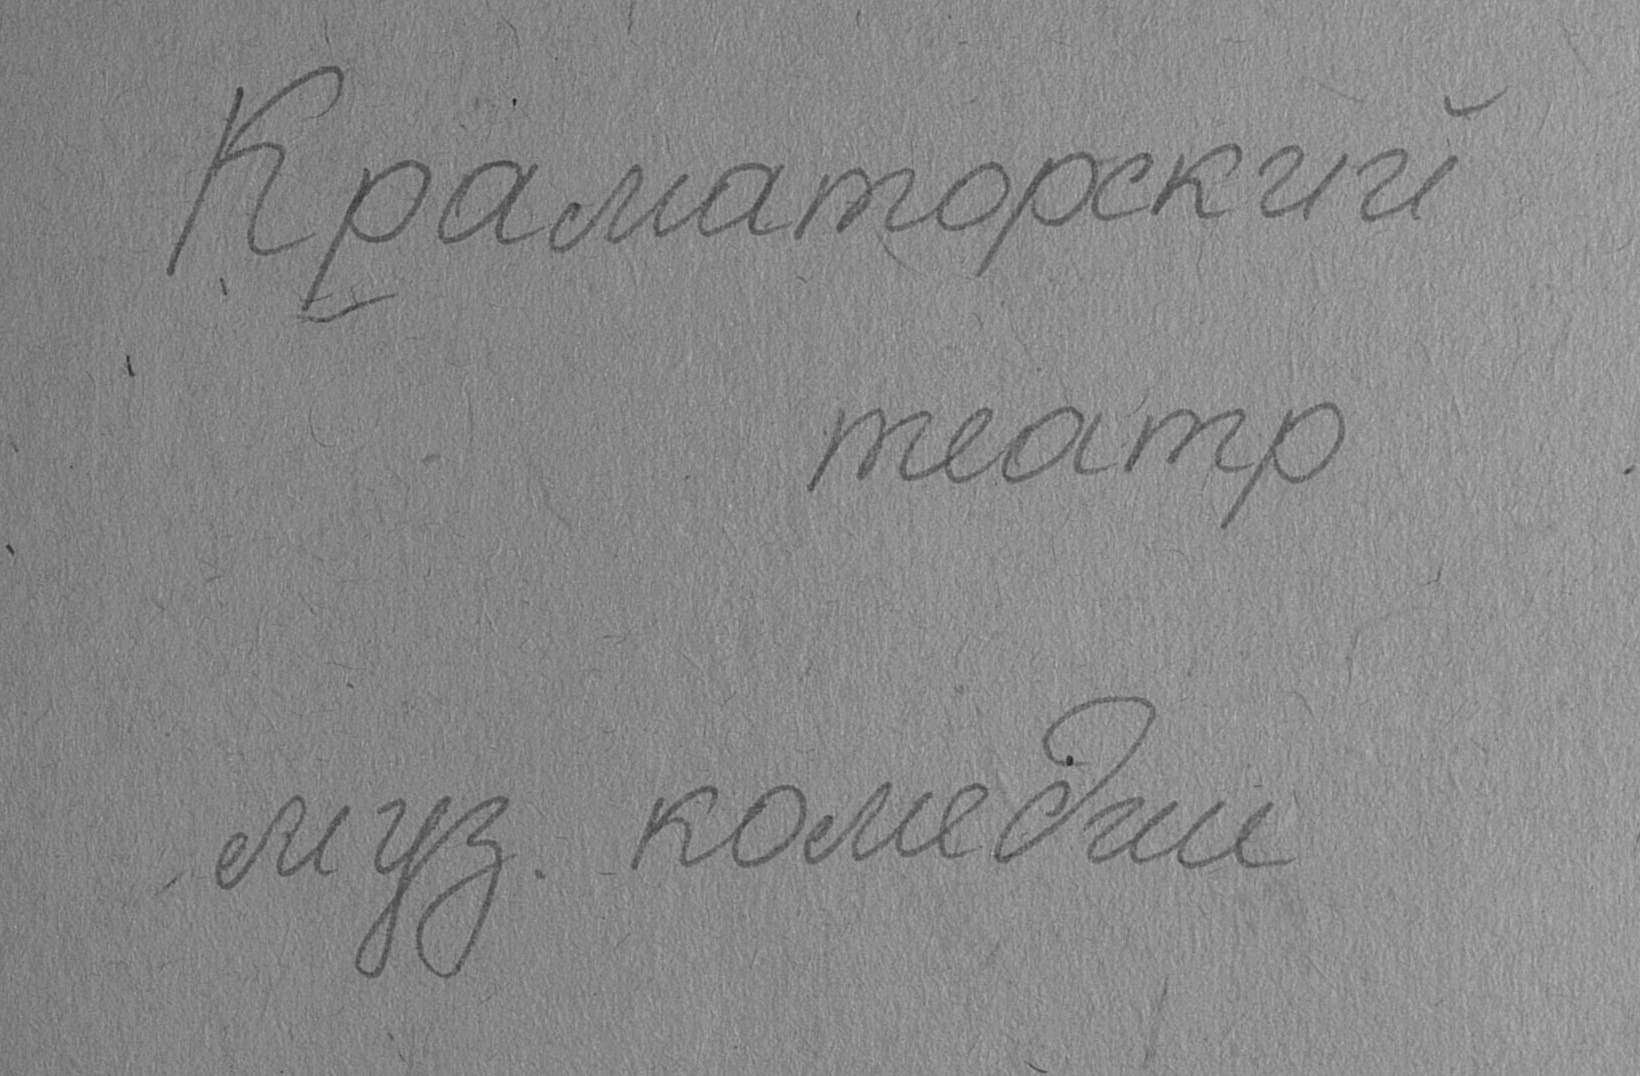 Краматорский
театр
муз. комедии